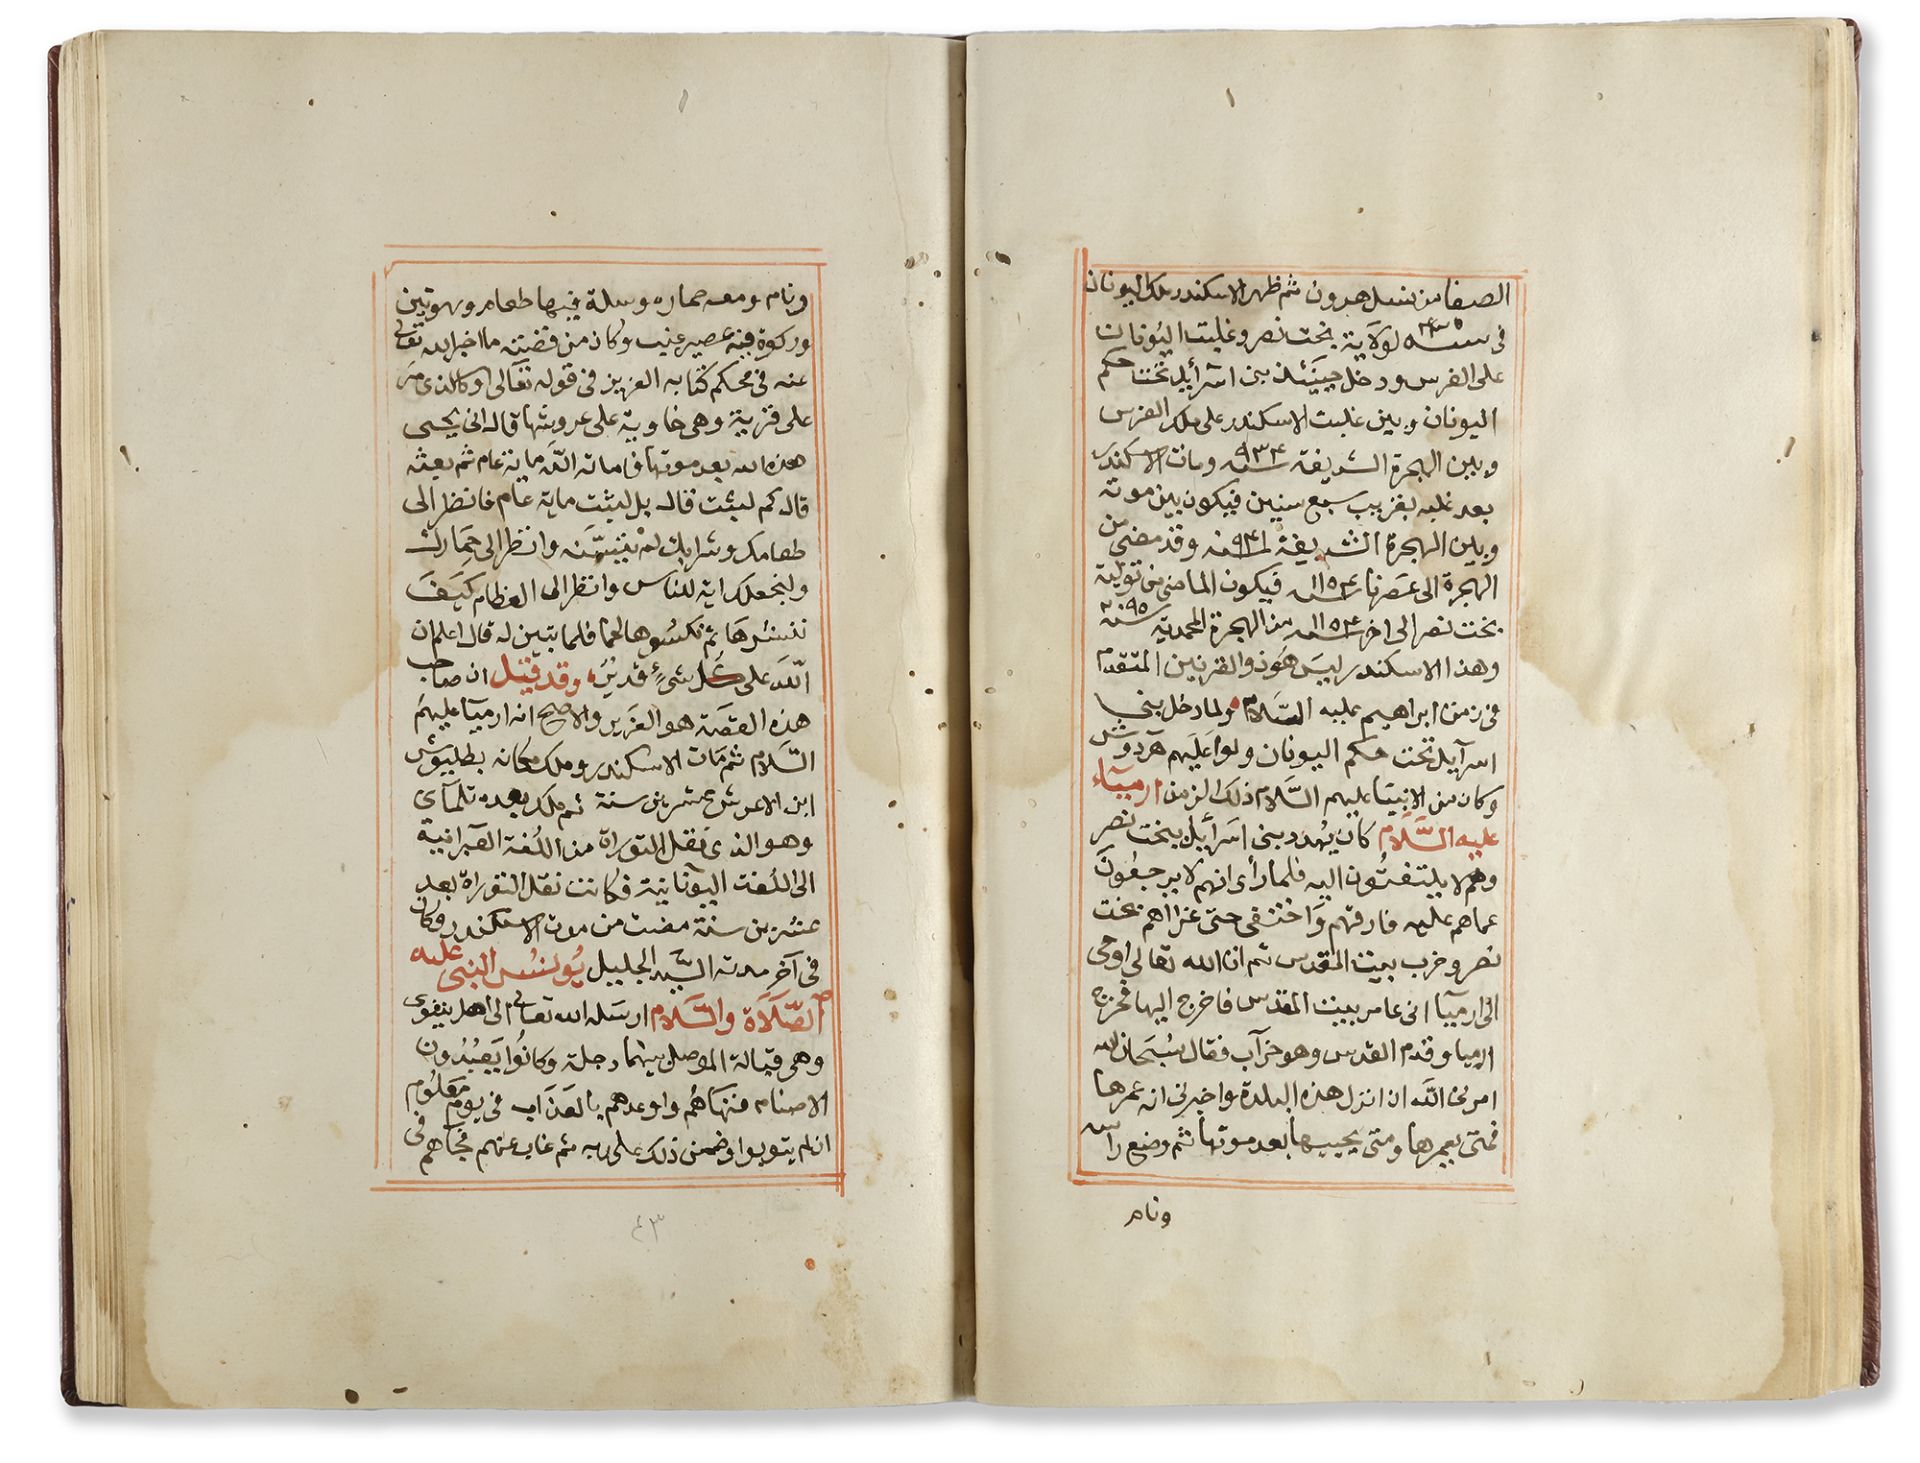 الصفا من نسل هرون ثم ظهر الاسكندر ملك اليونان
فى سنه ٤٣٥ لولاية بخت نصر وغلبت اليونان
على الفرس ودخل حينئذ بنى اسرآيل تحت حكم
اليونان وبين غلبت الاسكندر على ملك الفرس
وبين الهجرة الشريفة سنه ٩٣٤ ومات الاسكندر
بعد غلبه بقريب سبع سنين فيكون بين موته
وبين الهجرة الشريفة سنه ٩٤١ وقد مضى من
الهجرة الى عصرنا سنه ١١٥٤ فيكون الماضى من تولية
بخت نصر الى اخر سنه ١١٥٤ من الهجرة المحمدية سنه
وهذا الاسكندر ليس هو ذو القرنين المتقدم
فى زمن ابراهيم عليه السلام ولما دخل بنى
اسرآيل تحت حكم اليونان ولوا عليهم هردوش
وكان من الانبيا عليهم السلام ذلك الزمن ارميآء
عليه السلام كان يهدد بنى اسرآيل ببخت نصر
وهم لا يلتفتون اليه فلما رأى انهم لا يرجعون
عماهم عليه فارقهم واختفى حتى غزاهم بخت
نصر وخرب بيت المقدس ثم ان الله تعالى اوحى
الى ارميآ انى عامر بيت المقدس فاخرج اليها فخرج
ارميا وقدم القدس وهو خرآب فقال سبحان الله
امرنى الله ان انزل هذه البلدة واخبرنى انه عمرها
فمتى يعمرها ومتى يحييها بعد موتها ثم وضع راسه
ونام
ونام ومعه حماره وسلة فيها طعام وبهوتين
وركوة فيه عصير عنب وكان من قصته ما اخبر الله تعالى
عنه فى محكم كتابه العزيز فى قوله تعالى او كالذى مر
على قرية وهى خاوية على عروشها قال انى يحيى
هذه الله بعد موتها فاماته الله ماية عام ثم بعثه
قال كم لبثت قال بل لبثت ماية عام فانظر الى
طعامك وشرابك لم يتسنه وانظر الى حمارك
ولنجعلك اية للناس وانظر الى العظام كيف
ننشزها ثم نكسوها لحما فلما تبين له قال اعلم ان
الله على كل شئ قدير وقد قيل ان صاحب
هذه القصة هو العزير والاصح انه ارميآ عليهم
السلام ثم مات الاسكندر وملك مكانه بطليوش
ابن الاغوش عشرين سنة ثم ملك بعده تلمآى
وهو الذى نقل التوراة من اللغة العبرانية
الى اللغت اليونانية فكانت نقل التوراة بعد
عشرين سنة مضت من موت الاسكندر وكان
فى آخر مدته السيد الجليل يونس النبى عليه
الصلاة والسلام ارسله الله تعالى الى اهل نينوى
وهى قبالة الموصل بينهما دجلة وكانوا يعبدون
الاصنام فنهاهم واوعدهم بالعذاب فى يوم معلوم
ان لم يتوبوا وضمن ذلك على ربه ثم غاب عنهم فجآهم فى
٤٣